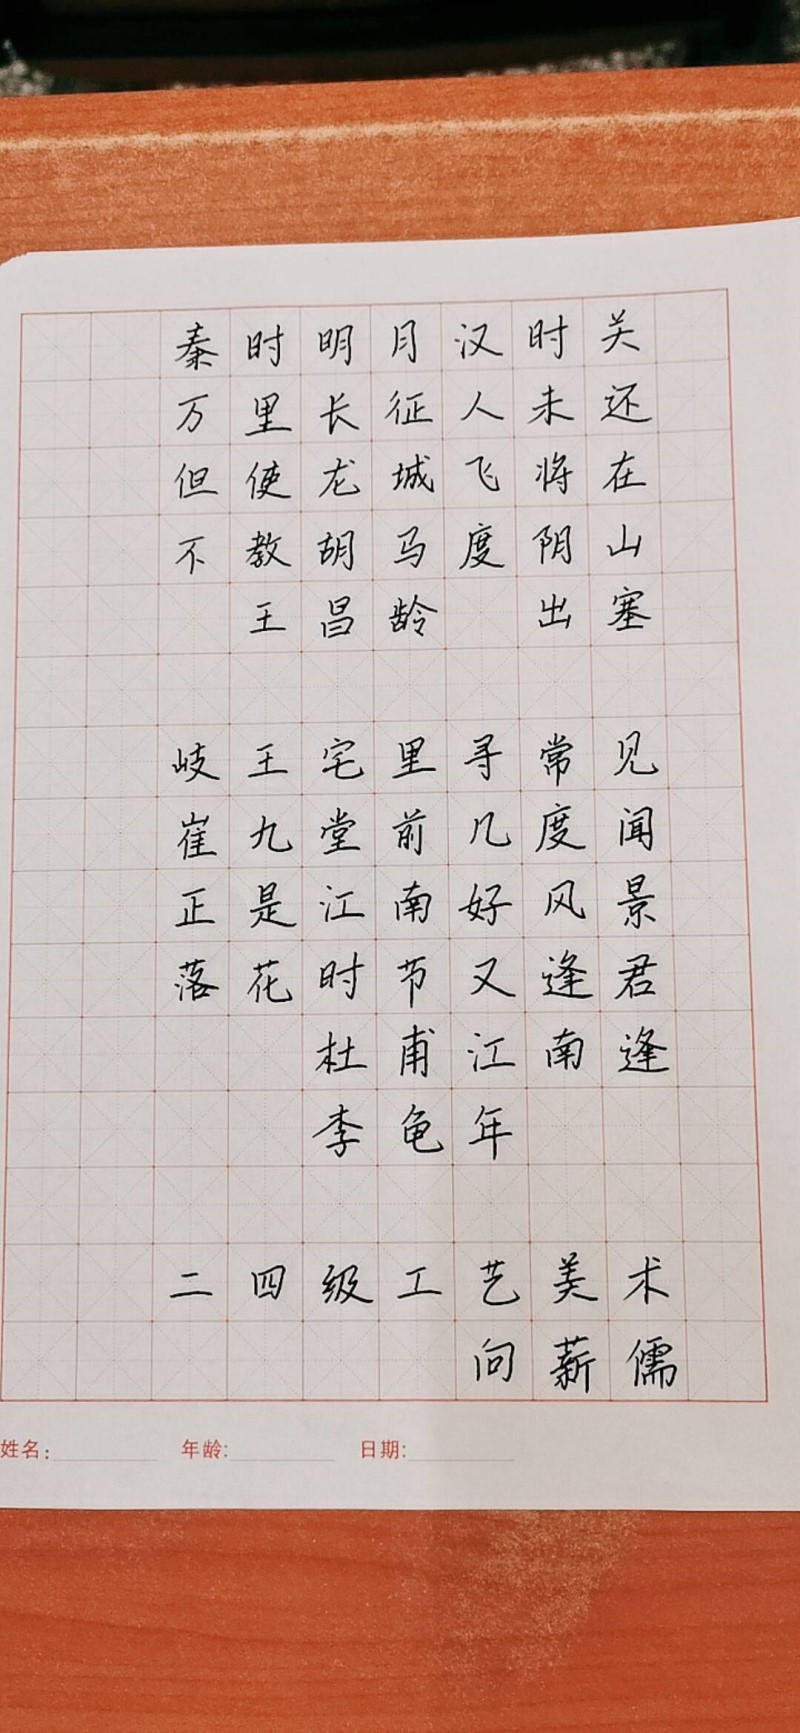 秦时明月汉时关
万里长征人未还
但使龙城飞将在
不教胡马度阴山
王昌龄 出塞
岐王宅里寻常见
崔九堂前几度闻
正是江南好风景
落花时节又逢君
杜甫江南逢
李龟年
二四级工艺美术
向薪儒
姓名:
年龄:
日期: